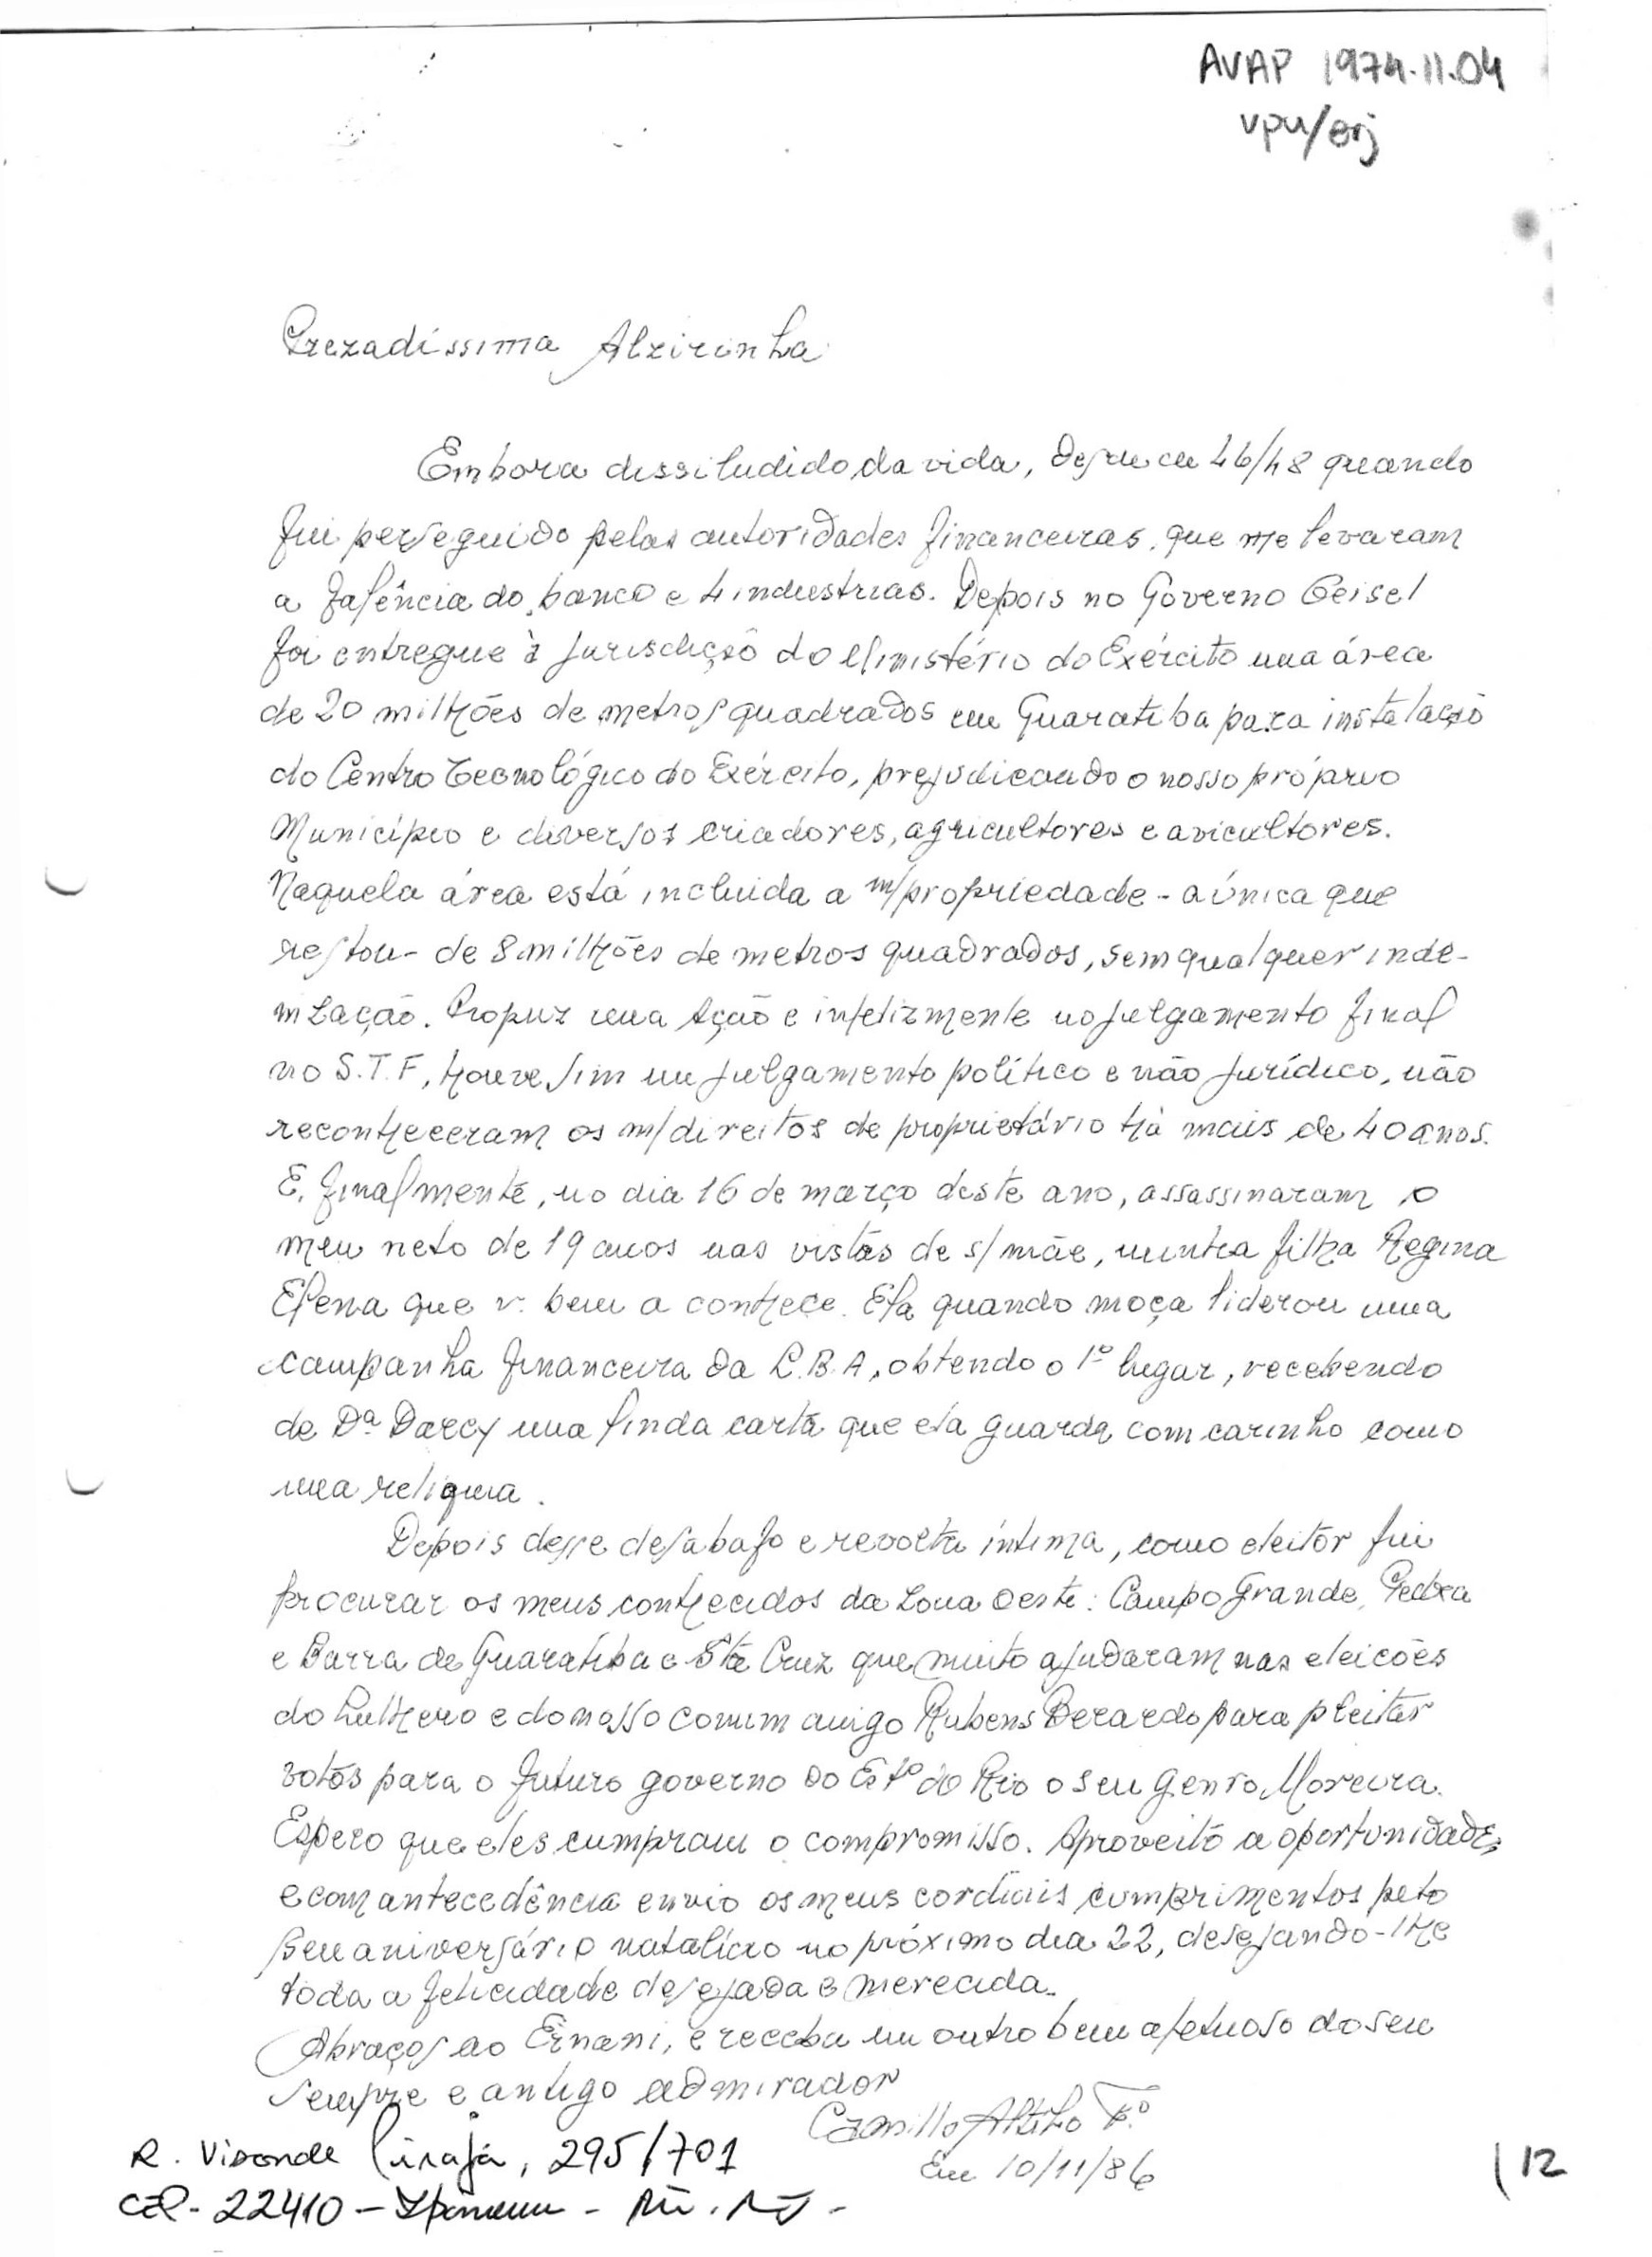 AVAP 1974.11.04
vpu/erj
Prezadíssima Alzirinha
Embora dessiludido da vida, desde 46/48 quando
fui perseguido pelas autoridades financeiras, que me levaram
a falência do banco e 4 industrias. Depois no Governo Geisel
foi entregue à jurisdição do Ministério do Exército uma área
de 20 milhões de metros quadrados em Guaratiba para instalação
do Centro Tecnológico do Exército, prejudicando o nosso próprio
Município e diversos criadores, agricultores e avicultores.
Naquela área está incluida a m/propriedade - a única que
restou - de 8 milhões de metros quadrados, sem qualquer inde-
nização. Propuz uma Ação e infelizmente no julgamento final
no S.T.F, houve sim um julgamento político e não jurídico, não
reconheceram os m/direitos de proprietário há mais de 40 anos.
E, finalmente, no dia 16 de março deste ano, assassinaram o
meu neto de 19 anos nas vistas de s/mãe, minha filha Regina
Elena que v. bem a conhece. Ela quando moça liderou uma
campanha financeira da L.B.A, obtendo o 1º lugar, recebendo
de Dª Darcy uma linda carta que ela guarda com carinho como
uma reliquia.
Depois desse desabafo e revolta íntima, como eleitor fui
procurar os meus conhecidos da Zona Oeste: Campo Grande, Pedra
e Barra de Guaratiba e Sta Cruz que muito ajudaram nas eleicões
do Luthero e do nosso comum amigo Rubens Berardo para pleitar
votos para o futuro governo do Estº do Rio o seu genro Moreira.
Espero que eles cumpram o compromisso. Aproveito a oportunidade,
e com antecedência envio os meus cordiais cumprimentos pelo
seu aniversário natalício no próximo dia 22, desejando-lhe
toda a felicidade desejada e merecida.
Abraços ao Ernani, e receba um outro bem afetuoso do seu
sempre e antigo admirador
Camillo Fº
Em 10/11/86
R. Visconde Pirajá, 295/701
CEP - 22410 - Ipanema - Rio. RJ -
12